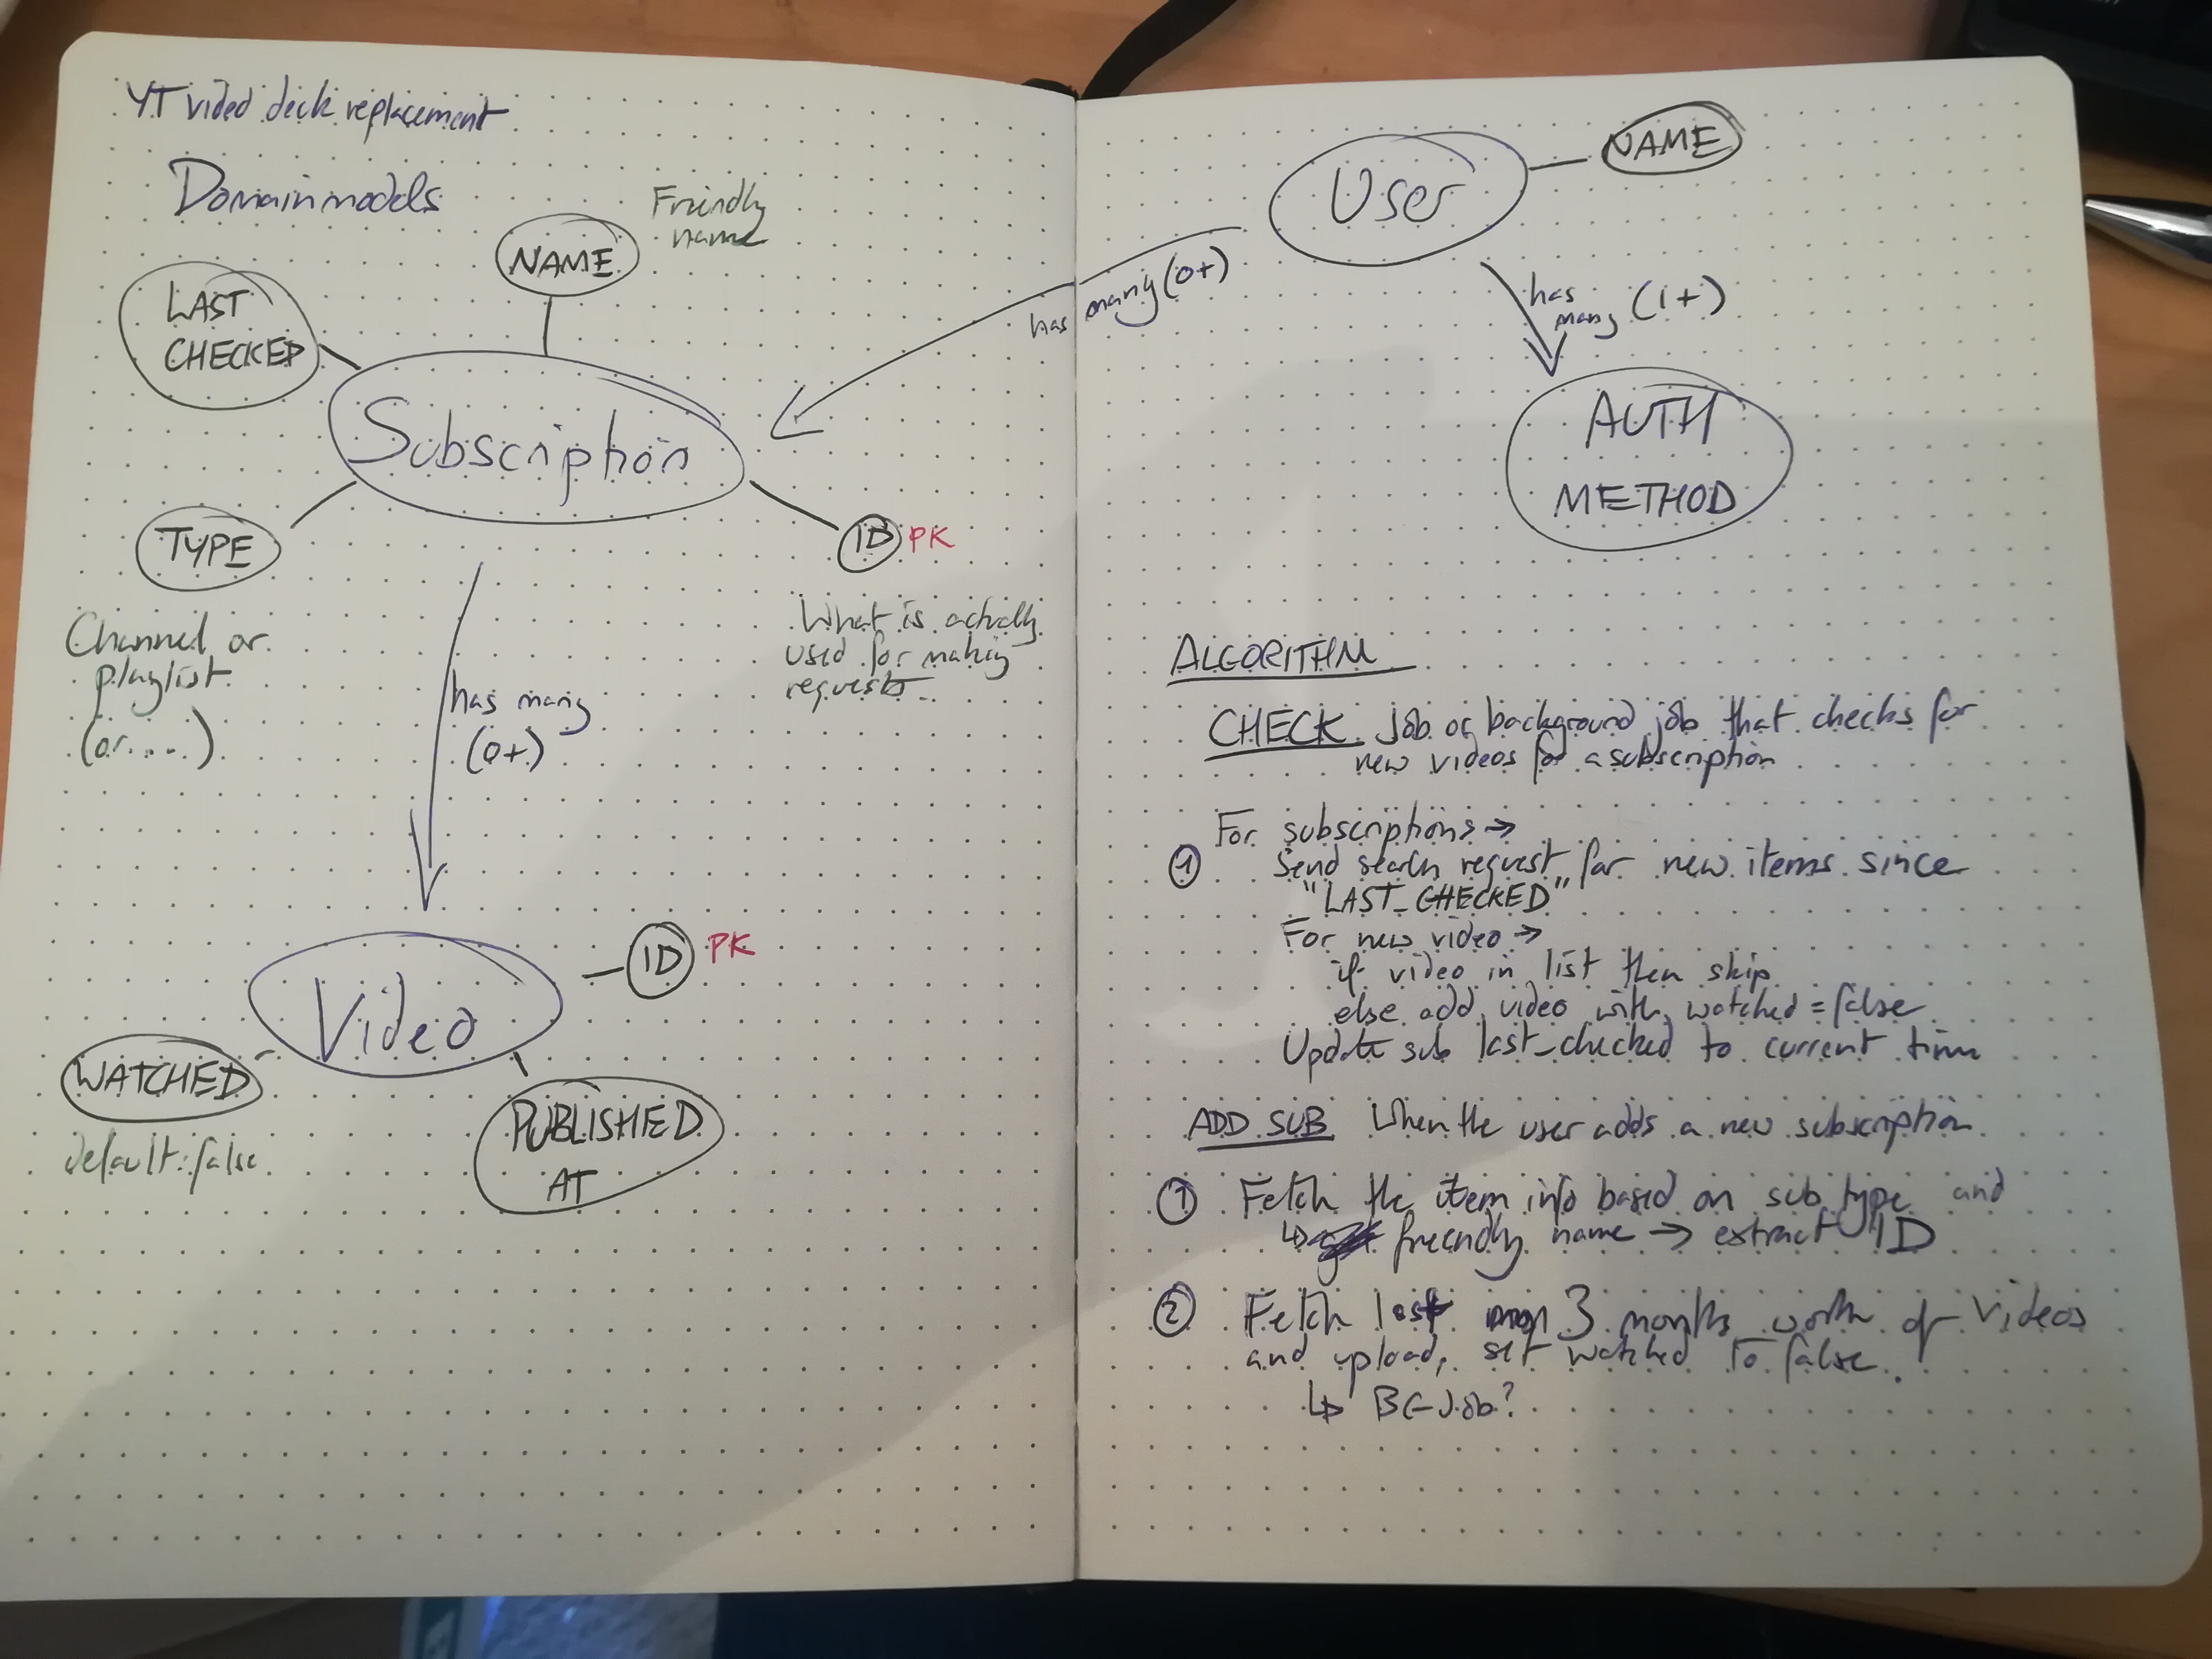 YT video deck replacement
Domain models
NAME
Friendly
name
LAST
CHECKED
Subscription
TYPE
ID PK
Channel or
playlist
(or....)
What is actually
used for making
requests
has many
(0+)
Video
ID PK
WATCHED
default: false
PUBLISHED
AT
User
NAME
has many (0+)
has
many (1+)
AUTH
METHOD
ALGORITHM
CHECK Job or background job that checks for
new videos for a subscription
For subscriptions →
1 Send search request for new items since
"LAST_CHECKED"
For new video →
if video in list then skip
else add video with watched = false
Update sub last_checked to current time
ADD SUB When the user adds a new subscription
1 Fetch the item info based on sub type and
↳ friendly name → extract ID
2 Fetch last 3 months worth of videos
and upload, set watched to false.
↳ BG Job?